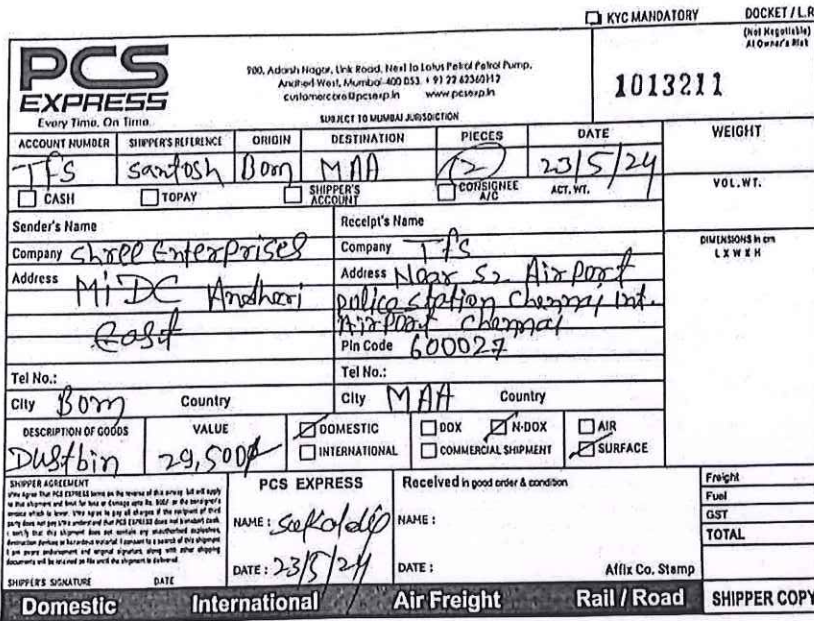 KYC MANDATORY
DOCKET / L.R
(Not Negotiable)
At Owner's Risk
PCS
EXPRESS
Every Time. On Time.
900, Adarsh Nagar, Link Road, Next to Lotus Petrol Patrol Pump,
Andheri West, Mumbai-400 053. + 91 22 62360112
customercare@pcsexp.in www.pcsexp.in
SUBJECT TO MUMBAI JURISDICTION
1013211
ACCOUNT NUMBER SHIPPER'S REFERENCE ORIGIN DESTINATION PIECES DATE WEIGHT
TFS Santosh Bom MAA 12 23/5/24
CASH TOPAY SHIPPER'S ACCOUNT CONSIGNEE A/C ACT. WT. VOL.WT.
Sender's Name
Company Shree Enterprises
Address MiDC Andheri
East
Tel No.:
City Bom Country
Receipt's Name
Company Tfs
Address Near S2 Airport
police station Chennai Int.
Airport Chennai
Pin Code 600027
Tel No.:
City MAA Country
DIMENSIONS in cm
L X W X H
DESCRIPTION OF GOODS VALUE
Dustbin 29,500
DOMESTIC DOX N-DOX AIR
INTERNATIONAL COMMERCIAL SHIPMENT SURFACE
SHIPPER AGREEMENT
SHIPPER'S SIGNATURE DATE
PCS EXPRESS
NAME :
DATE : 23/5/24
Received in good order & condition
NAME :
DATE : Affix Co. Stamp
Freight
Fuel
GST
TOTAL
Domestic International Air Freight Rail / Road SHIPPER COPY